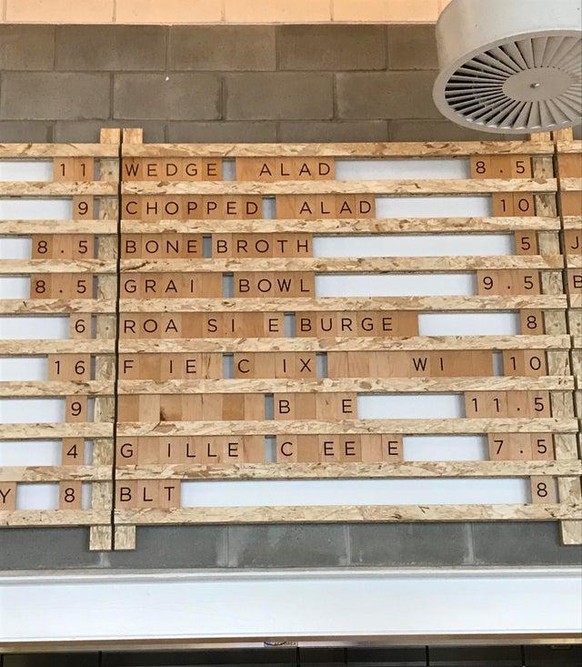 11 WEDGE ALAD 8.5
9 CHOPPED ALAD 10
8.5 BONE BROTH 5 J
8.5 GRAI BOWL 9.5 B
6 ROA SI E BURGE 8
16 F IE C IX WI 10
9 B E 11.5
4 G ILLE C EE E 7.5
Y 8 BLT 8